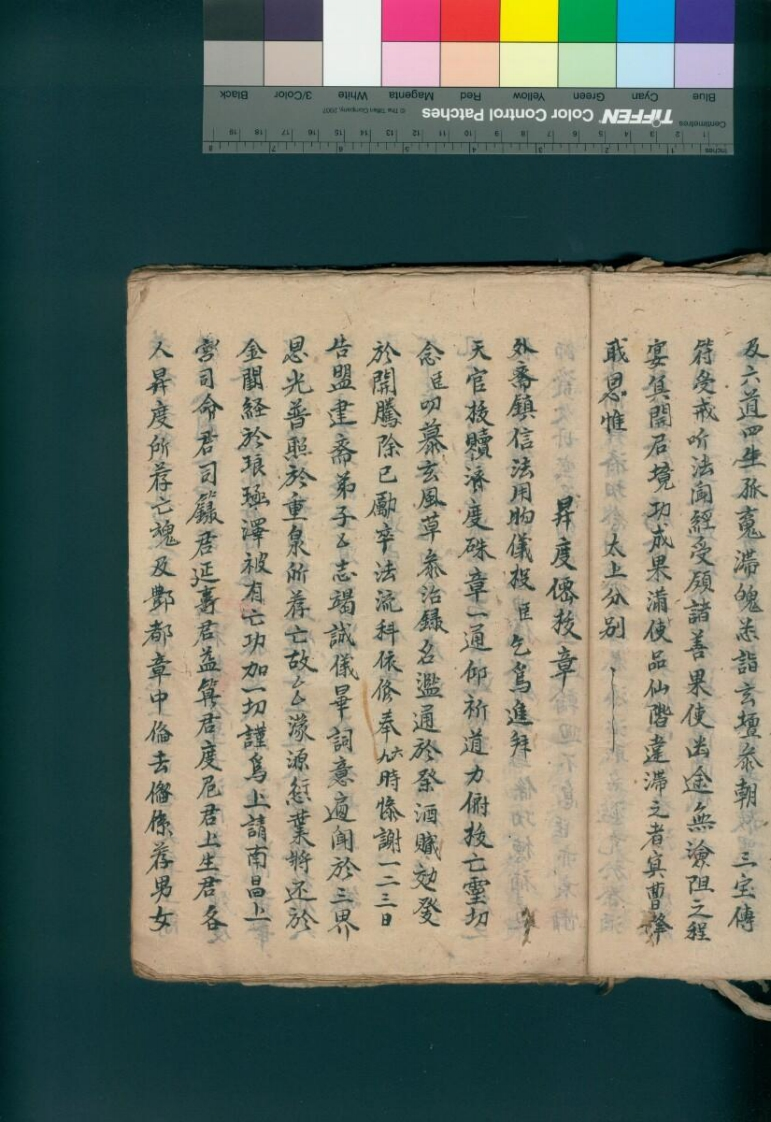 及六道四生孤魂滯魄恭詣玄壇恭朝 三宝傳
符受戒听法闻經受領諸善果使出途無險阻之程
宴其閣居境功成果滿使品仙階違滯之者宾曹
戢思惟 太上分别
昇度僊拔章
外斋鎮信法用胁儀投臣 乞為進拜
天官拔贖濟度硃章一通仰祈道力俯拔亡霊切
念臣叨慕玄風草忝治錄名濫通於祭酒職効發
於開騰除已勵率法流科依修奉 六時懺謝一二三日
告盟建斋弟子厶志竭誠儀畢詞意遍闻於三界
恩光普照於重泉所荐亡故厶濛源愆業將还於
金闕経於琅極澤被有亡功加一切謹為上請南昌上
宫司命君司籙君延壽君益筭君度厄君上生君各
人昇度所荐亡魂及酆都章中俻去僊條荐男女
Blue
Cyan
Green
Yellow
Red
Magenta
White
3/Color
Black
TIFFEN Color Control Patches
© The Tiffen Company, 2007
Centimetres
Inches